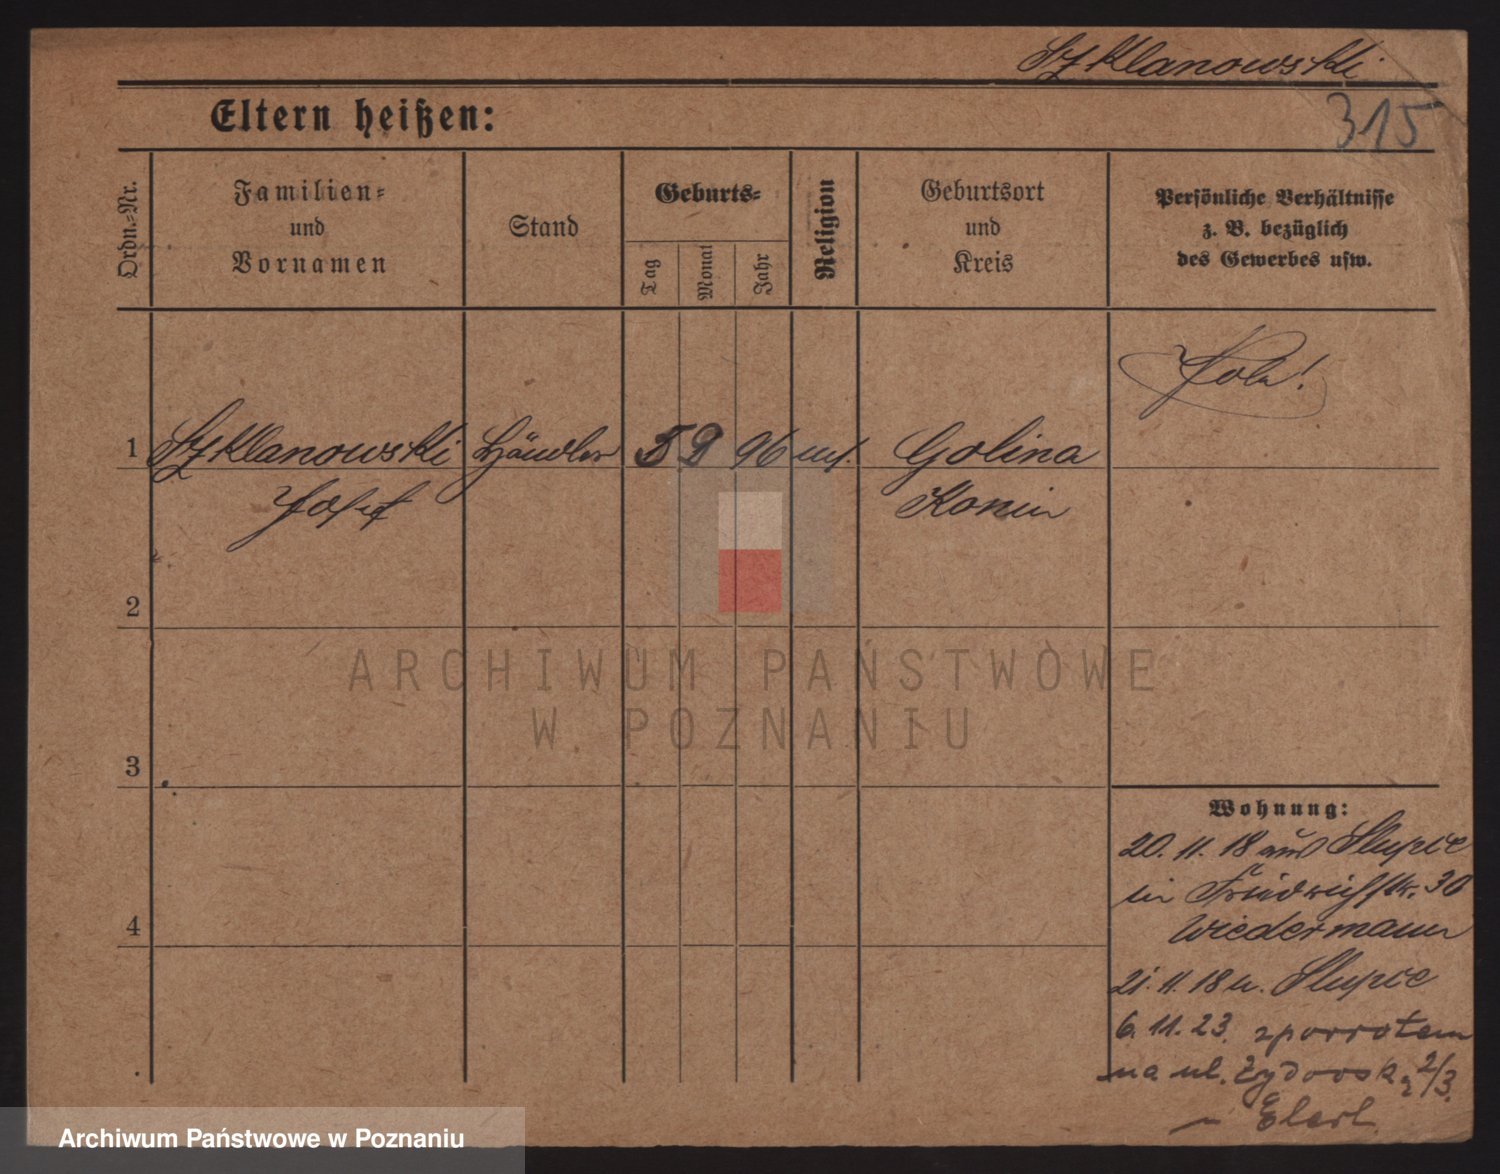 Szklanowski
315
Eltern heißen:
Ordn.-Nr.
Familien-
und
Vornamen
Stand
Geburts-
Tag
Monat
Jahr
Religion
Geburtsort
und
Kreis
Persönliche Verhältnisse
z. B. bezüglich
des Gewerbes usw.
1 Szklanowski Händler 5 2 96 Golina
Josef Konin
2
3
4
ARCHIWUM PAŃSTWOWE
W POZNANIU
Wohnung:
20. 11. 18 aus Slupce
in Friedrichstr. 30
Wiedermann
21. 11. 18 n. Slupce
6. 11. 23. zpowrotem
na ul. Żydowską 2/3.
Archiwum Państwowe w Poznaniu